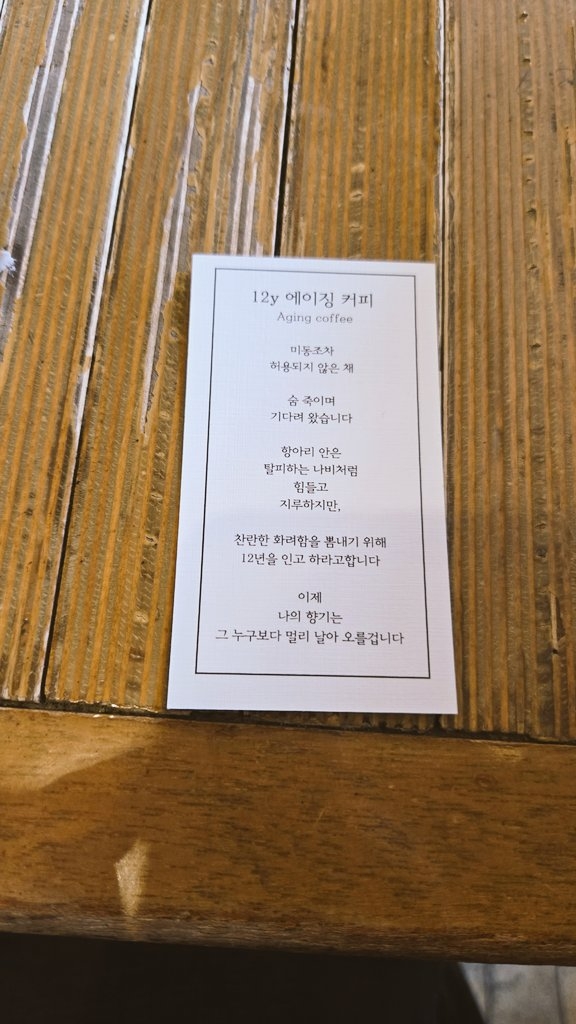 12y 에이징 커피
Aging coffee
미동조차
허용되지 않은 채
숨 죽이며
기다려 왔습니다
항아리 안은
탈피하는 나비처럼
힘들고
지루하지만,
찬란한 화려함을 뽐내기 위해
12년을 인고 하라고합니다
이제
나의 향기는
그 누구보다 멀리 날아 오를겁니다